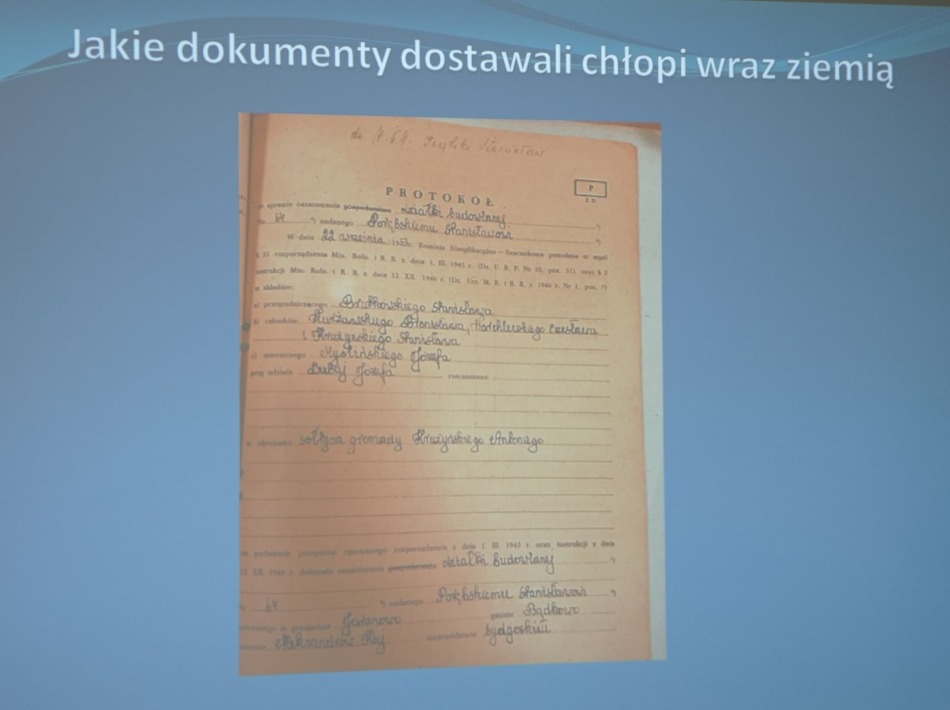 Jakie dokumenty dostawali chłopi wraz ziemią
P
PROTOKÓŁ
w sprawie oszacowania gospodarstwa działki budowlanej
Nr 64 *) nadanego Porębskiemu Stanisławowi *)
W dniu 22 września Komisja Klasyfikacyjno - Szacunkowa powołana w myśl
§ rozporządzenia Min. Roln. i R. R. z dnia 1. III. 1945 r. (Dz. U. R. P. Nr 10, poz. 51). oraz § 2
instrukcji Min. Roln. i R. R. z dnia 12. XII. 1946 r. (Dz. Urz. M. R. i R. R. z 1946 r. Nr 1, poz. 7)
w składzie:
a) przewodniczącego Brutkowskiego Stanisława
b) członków Bronisława, Czesława
i Krużyńskiego Stanisława
c) mierniczego Józefa
przy udziale Józefa rzeczoznawcy
w obecności sołtysa gromady Krużyńskiego Antoniego
na podstawie przepisów rozporządzenia z dnia 1. III. 1945 r. oraz instrukcji z dnia
12. XII. 1946 r. dokonała oszacowania gospodarstwa działki budowlanej *)
Nr 64 *) nadanego Porębskiemu Stanisławowi *)
położonego w gromadzie gminie Bądkowo
powiecie Aleksandrów Kuj województwie bydgoskim